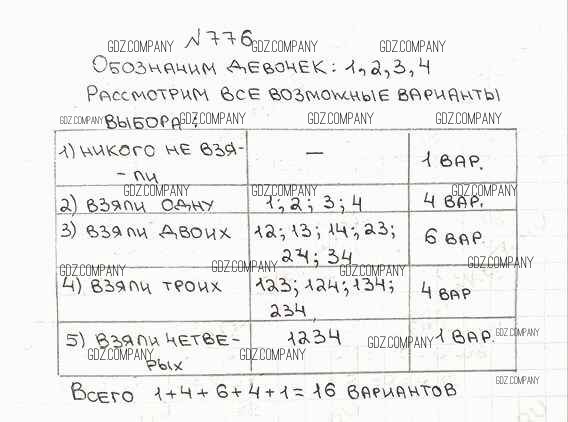 №776
GDZ.COMPANY GDZ.COMPANY GDZ.COMPANY
Обозначим девочек: 1, 2, 3, 4
Рассмотрим все возможные варианты
GDZ.COMPANY GDZ.COMPANY GDZ.COMPANY GDZ.COMPANY
выбора:
1) никого не взя- — 1 вар.
-ли
GDZ.COMPANY GDZ.COMPANY GDZ.COMPANY
2) взяли одну 1; 2; 3; 4 4 вар.
3) взяли двоих 12; 13; 14; 23; 6 вар.
24; 34
GDZ.COMPANY GDZ.COMPANY GDZ.COMPANY
4) взяли троих 123; 124; 134; 4 вар
234
5) взяли четве- 1234 1 вар.
GDZ.COMPANY
GDZ.COMPANY GDZ.COMPANY GDZ.COMPANY
рых
GDZ.COMPANY
Всего 1+4+6+4+1=16 вариантов